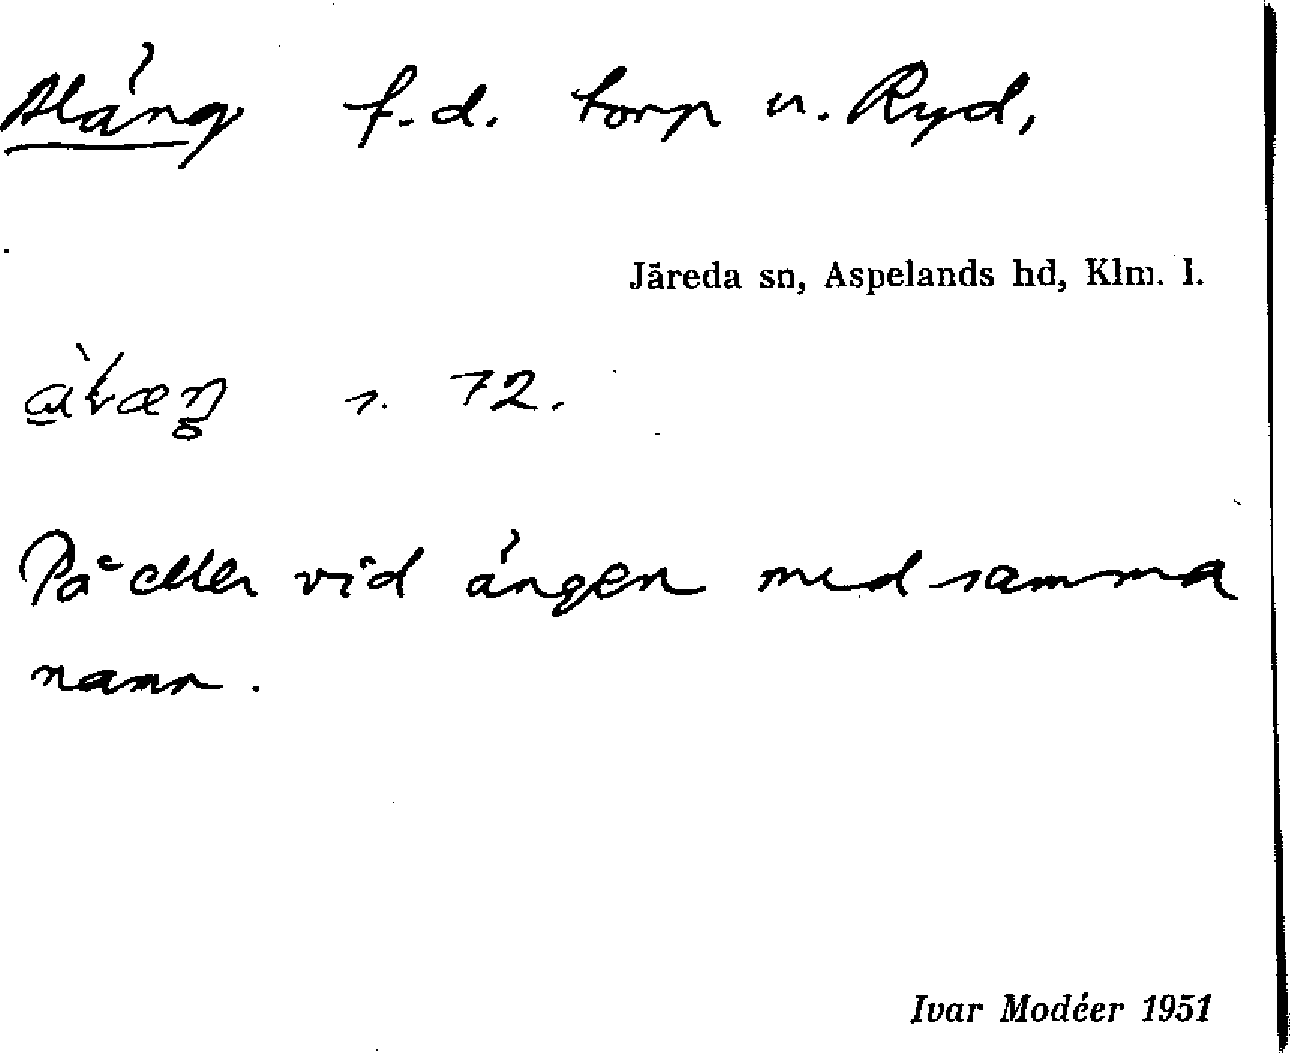 Aläng f.d. torp u. Ryd,
Järeda sn, Aspelands hd, Klm. l.
s. 72.
På eller vid ängen med samma
namn.
Ivar Modéer 1951